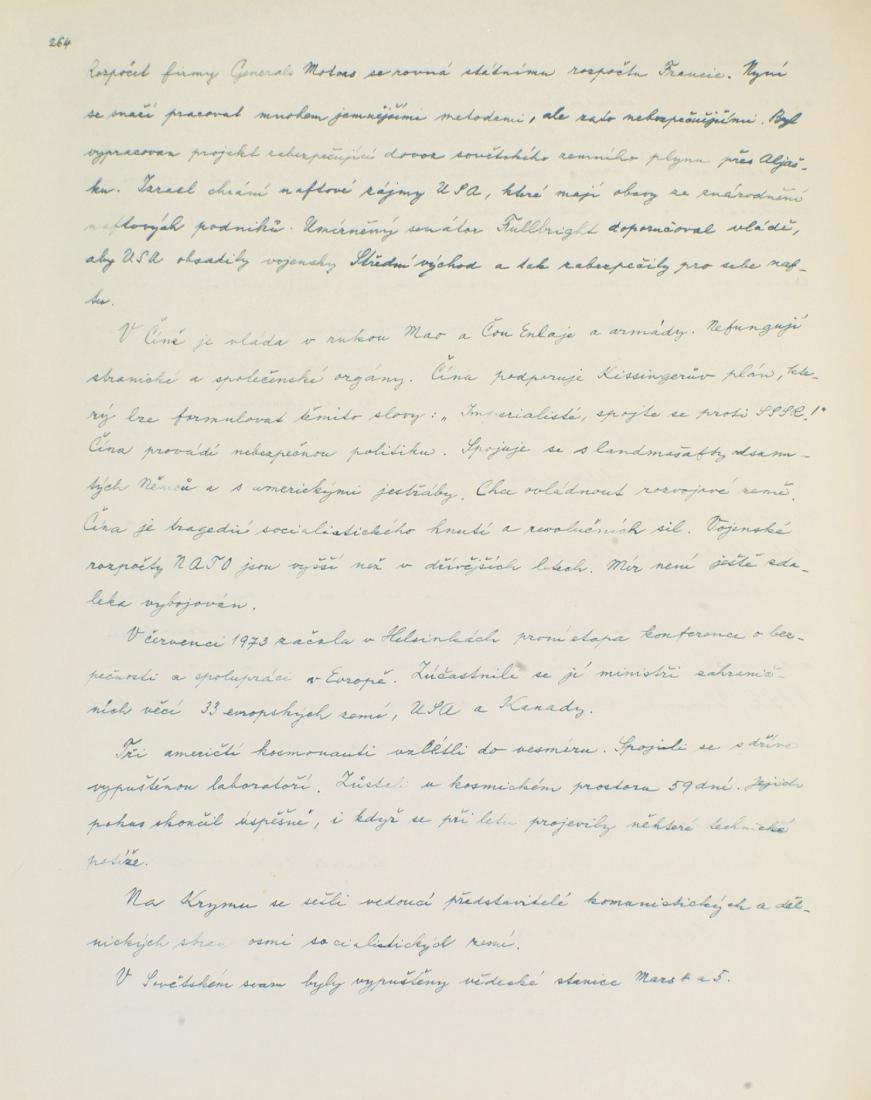 264
Rozpočet firmy Generals Motors se rovná státnímu rozpočtu Francie. Nyní
se snaží pracovat mnohem jemnějšími metodami, ale zato nebezpečnějšími. Byl
vypracován projekt zabezpečující dovoz sovětského zemního plynu přes Aljaš-
ku. Izrael chrání naftové zájmy USA, které mají obavy ze znárodnění
naftových podniků. Umírněný senátor Fullbright doporučoval vládě,
aby USA obsadily vojensky Střední východ a tak zabezpečily pro sebe naf-
tu.
V Číně je vláda v rukou Mao a Čou Enlaje a armády. Nefungují
stranické a společenské orgány. Čína podporuje Kissingerův plán, kte-
rý lze formulovat těmito slovy: „Imperialisté, spojte se proti SSSR!"
Čína provádí nebezpečnou politiku. Spojuje se s landmašafty odsunu-
tých Němců a s americkými jestřáby. Chce ovládnout rozvojové země.
Čína je tragedií socialistického hnutí a revolučních sil. Vojenské
rozpočty NATO jsou vyšší než v dřívějších letech. Mír není ještě zda-
leka vybojován.
V červenci 1973 začala v Helsinkách první etapa konference o bez-
pečnosti a spolupráci v Evropě. Zúčastnili se jí ministři zahranič-
ních věcí 33 evropských zemí, USA a Kanady.
Tři američtí kosmonauti vzlétli do vesmíru. Spojili se s dříve
vypuštěnou laboratoří. Zůstali v kosmickém prostoru 59 dní. Jejich
pokus skončil úspěšně, i když se při letu projevily některé technické
potíže.
Na Krymu se sešli vedoucí představitelé komunistických a děl-
nických stran osmi socialistických zemí.
V Sovětském svazu byly vypuštěny vědecké stanice Mars 4 a 5.